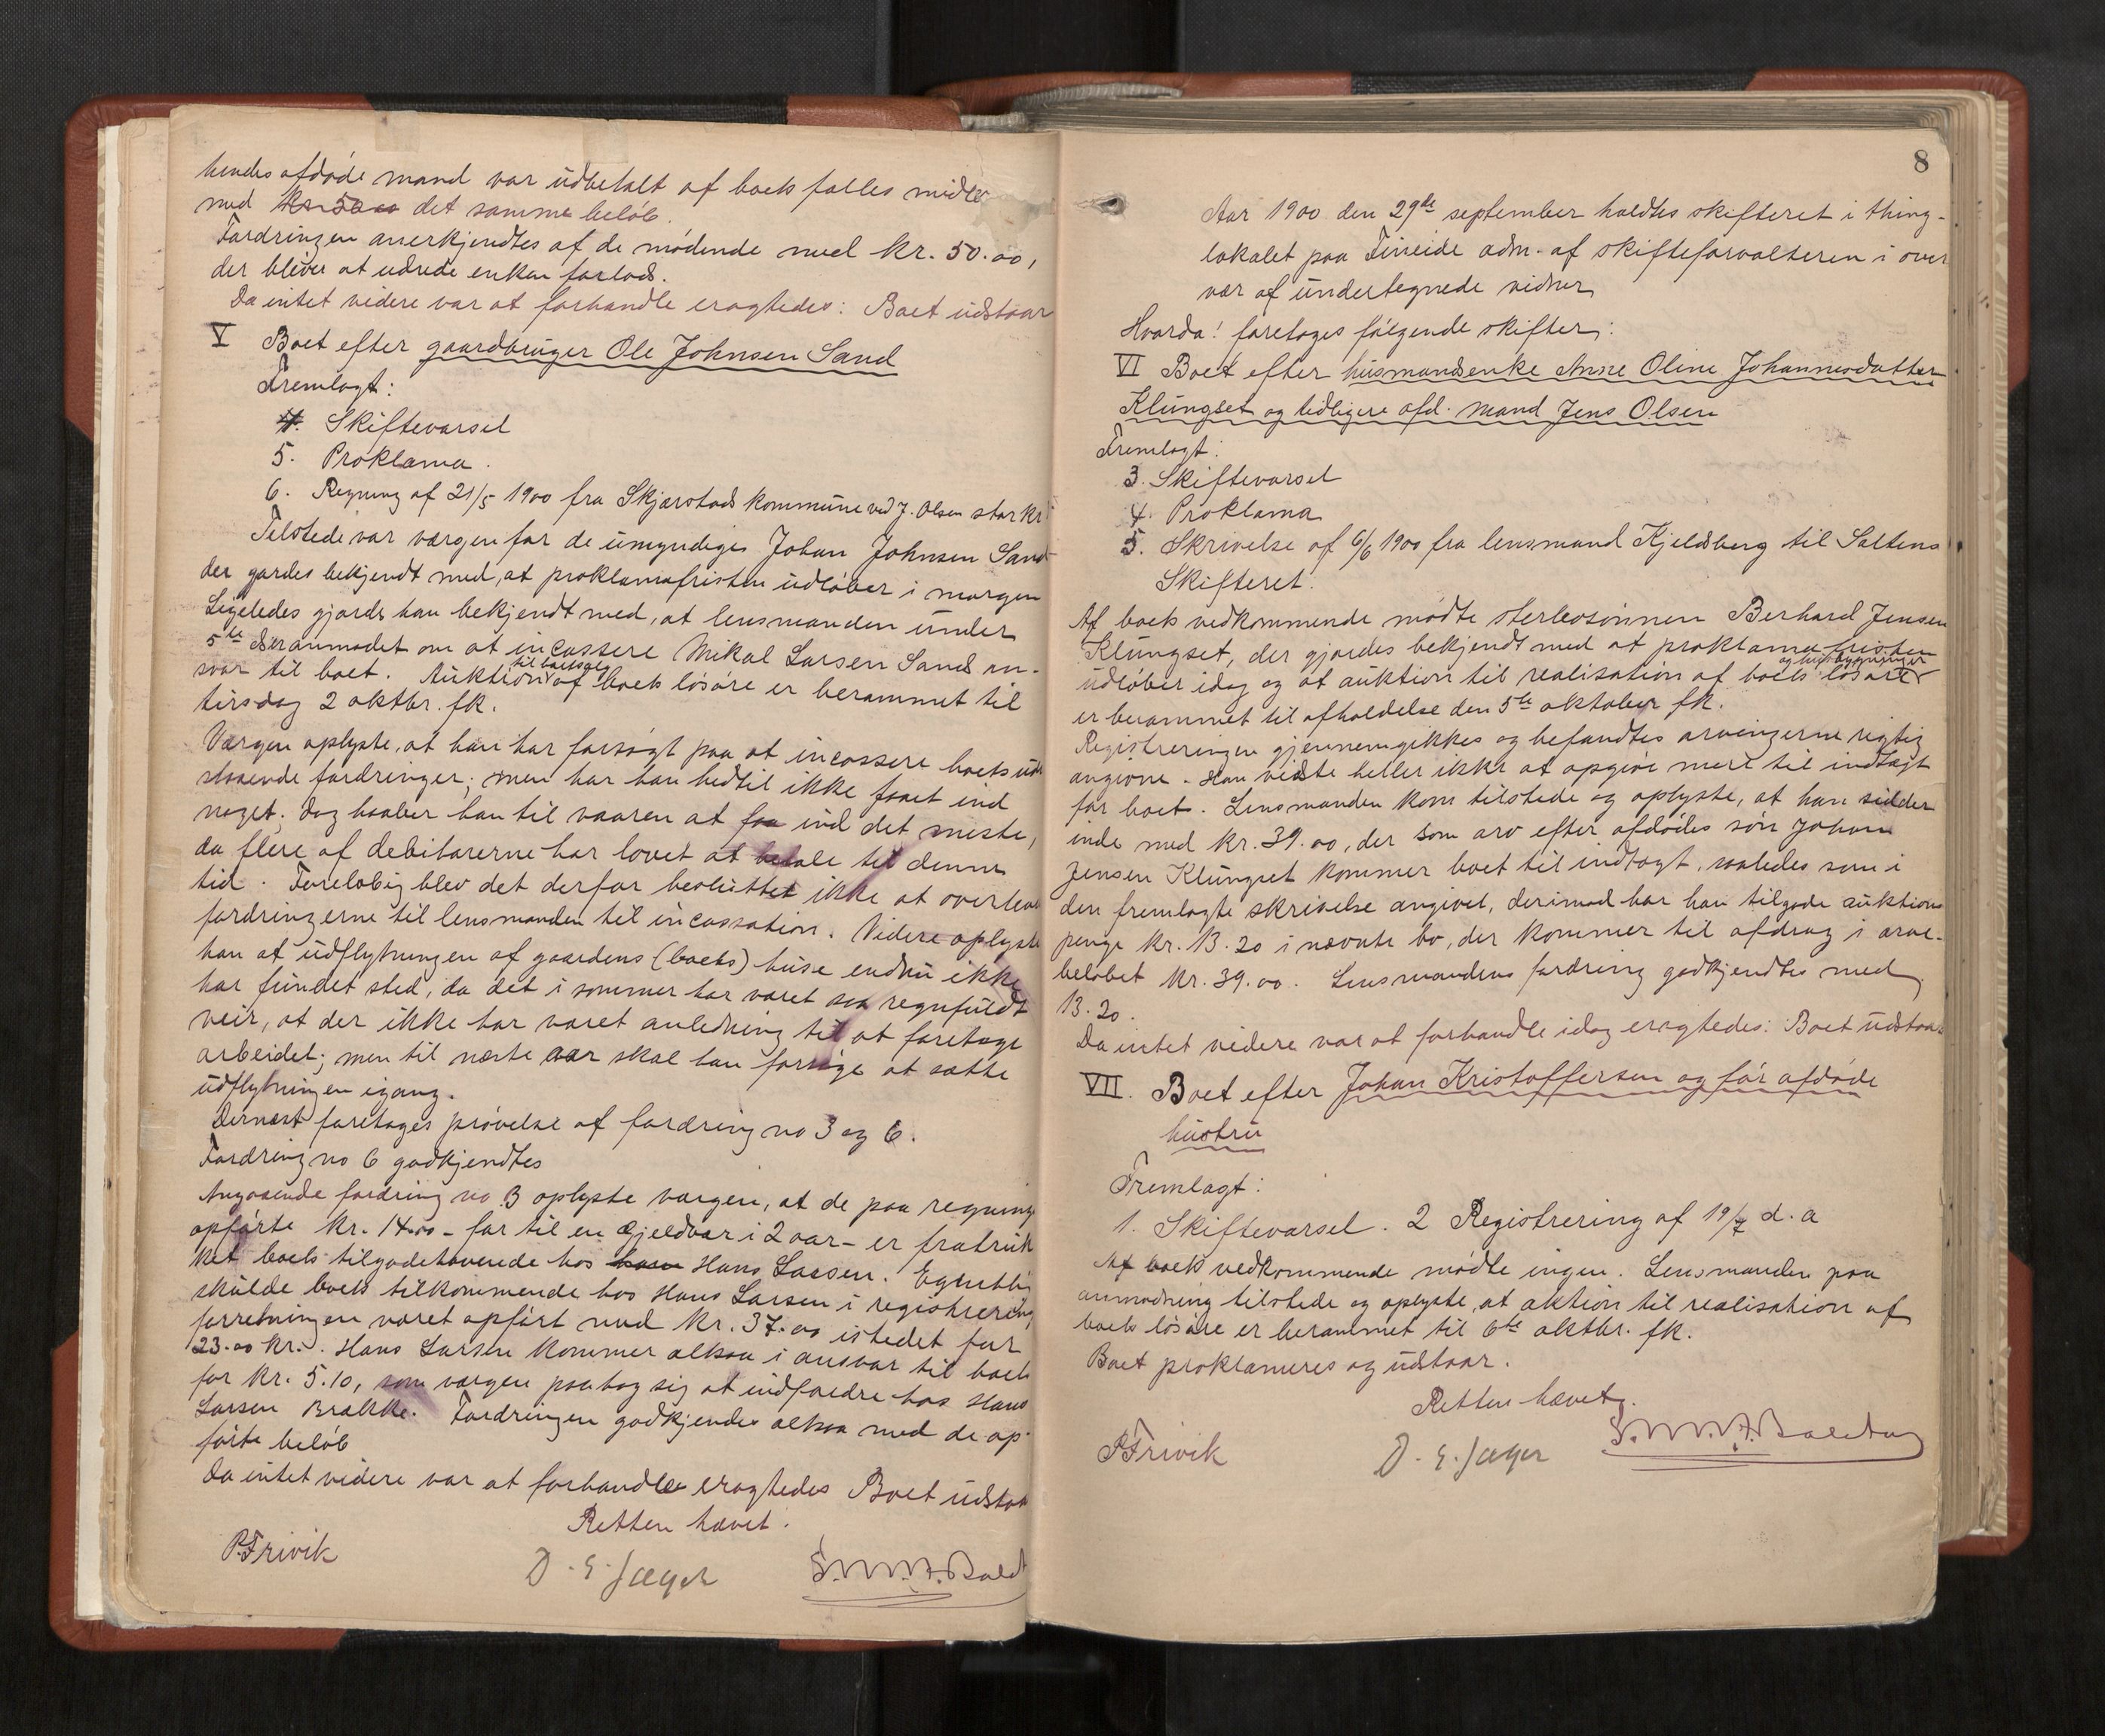 hendes afdøde mand var udbetalt af boets fælles midler
med kr. 50.00 det samme beløb.
Fordringen anerkjendtes af de mødende med kr. 50.00,
der bliver at udrede enken forlods.
Da intet videre var at forhandle eragtedes: Boet udstaar
V Boet efter gaardbruger Ole Johnsen Sand
Fremlagt:
4. Skiftevarsel
5. Proklama.
6. Regning af 21/5 1900 fra Skjerstad kommune ved J. Olsen stor kr
Tilstede var værgen for de umyndige Johan Johnsen Sand
der gjordes bekjendt med, at proklamafristen udløber i morgen
Ligeledes gjords han bekjendt med, at lensmanden under
5te er anmodet om at incassere Mikal Larsen Sands an-
svar til boet. Auktion til bortsalg af boets løsøre er berammet til
tirsdag 2 oktbr. fk.
Værgen oplyste, at han har forsøgt paa at incassere boets ude
staaende fordringer; men har han hidtil ikke faaet ind
noget; dog haaber han til vaaren at faa ind det meste,
da flere af debitorerne har lovet at betale til denne
tid. Foreløbig blev det derfor besluttet ikke at overlevere
fordringerne til lensmanden til incassation. Videre oplyste
han at udflytningen af gaardens (boets) huse endnu ikke
har fundet sted, da det i sommer har været saa regnfuldt
veir, at der ikke har været anledning til at foretage
arbeidet; men til næste aar skal han forsøge at sætte
udflytningen igang.
Dernæst foretages prøvelse af fordring no 3 og 6.
Fordring no 6 godkjendtes
Angaaende fordring no 3 oplyste værgen, at de paa regning
opførte kr. 14.00 - for til en gjeldvær i 2 aar - er fratruk
ket boets tilgodehavende hos ham Hans Larsen. Egentlig
skulde boets tilkommende hos Hans Larsen i registrering
forretningen været opført med kr. 37.00 istedet for
23.00 kr. Hans Larsen kommer altsaa i ansvar til boet
for kr. 5.10, som værgen paatog sig at indfordre hos Hans
Larsen Brække. Fordringen godkjendes altsaa med de op-
førte beløb
Da intet videre var at forhandle eragtedes Boet udstaar
Retten hævet.
P. Frivik
D. E. Jæger
8
Aar 1900 den 29de september holdtes skifteret i thing-
lokalet paa Fineide adm. af skifteforvalteren i over
vær af undertegnede vidner
Hvorda! foretages følgende skifter:
VI Boet efter husmandsenke Anne Oline Johannesdatter
Klungset og tidligere afd. mand Jens Olsen
Fremlagt:
3. Skiftevarsel
4. Proklama
5. Skrivelse af 6/6 1900 fra lensmand Kjeldsberg til Saltens
Skifteret.
Af boets vedkommende mødte sterbosønnen Berhard Jensen
Klungset, der gjordes bekjendt med at proklamafristen
udløber idag og at auktion til realisation af boets løsøre og husbygninger
er berammet til afholdelse den 5te oktober fk.
Registreringen gjennemgikkes og befandtes arvingerne rigtig
angivne. Han vidste heller ikke at opgive mere til indtægt
for boet. Lensmanden kom tilstede og oplyste, at han sidder
inde med kr. 39.00, der som arv efter afdødes søn Johan
Jensen Klungset kommer boet til indtægt, saaledes som i
den fremlagte skrivelse angivet, derimod har han tilgode auktions
penge kr. 13.20 i nævnte bo, der kommer til afdrag i arve-
beløbet kr. 39.00. Lensmandens fordring godkjendtes med
13.20.
Da intet videre var at forhandle idag eragtedes: Boet udstaar
VII. Boet efter Johan Kristoffersen og før afdøde
hustru
Fremlagt:
1. Skiftevarsel. 2 Registrering af 19/7 d. a
Af boets vedkommende mødte ingen. Lensmanden paa
anmodning tilstede og oplyste, at aktion til realisation af
boets løsøre er berammet til 6te oktbr. fk.
Boet proklameres og udstaar.
Retten hævet.
P. Frivik
D. E. Jæger